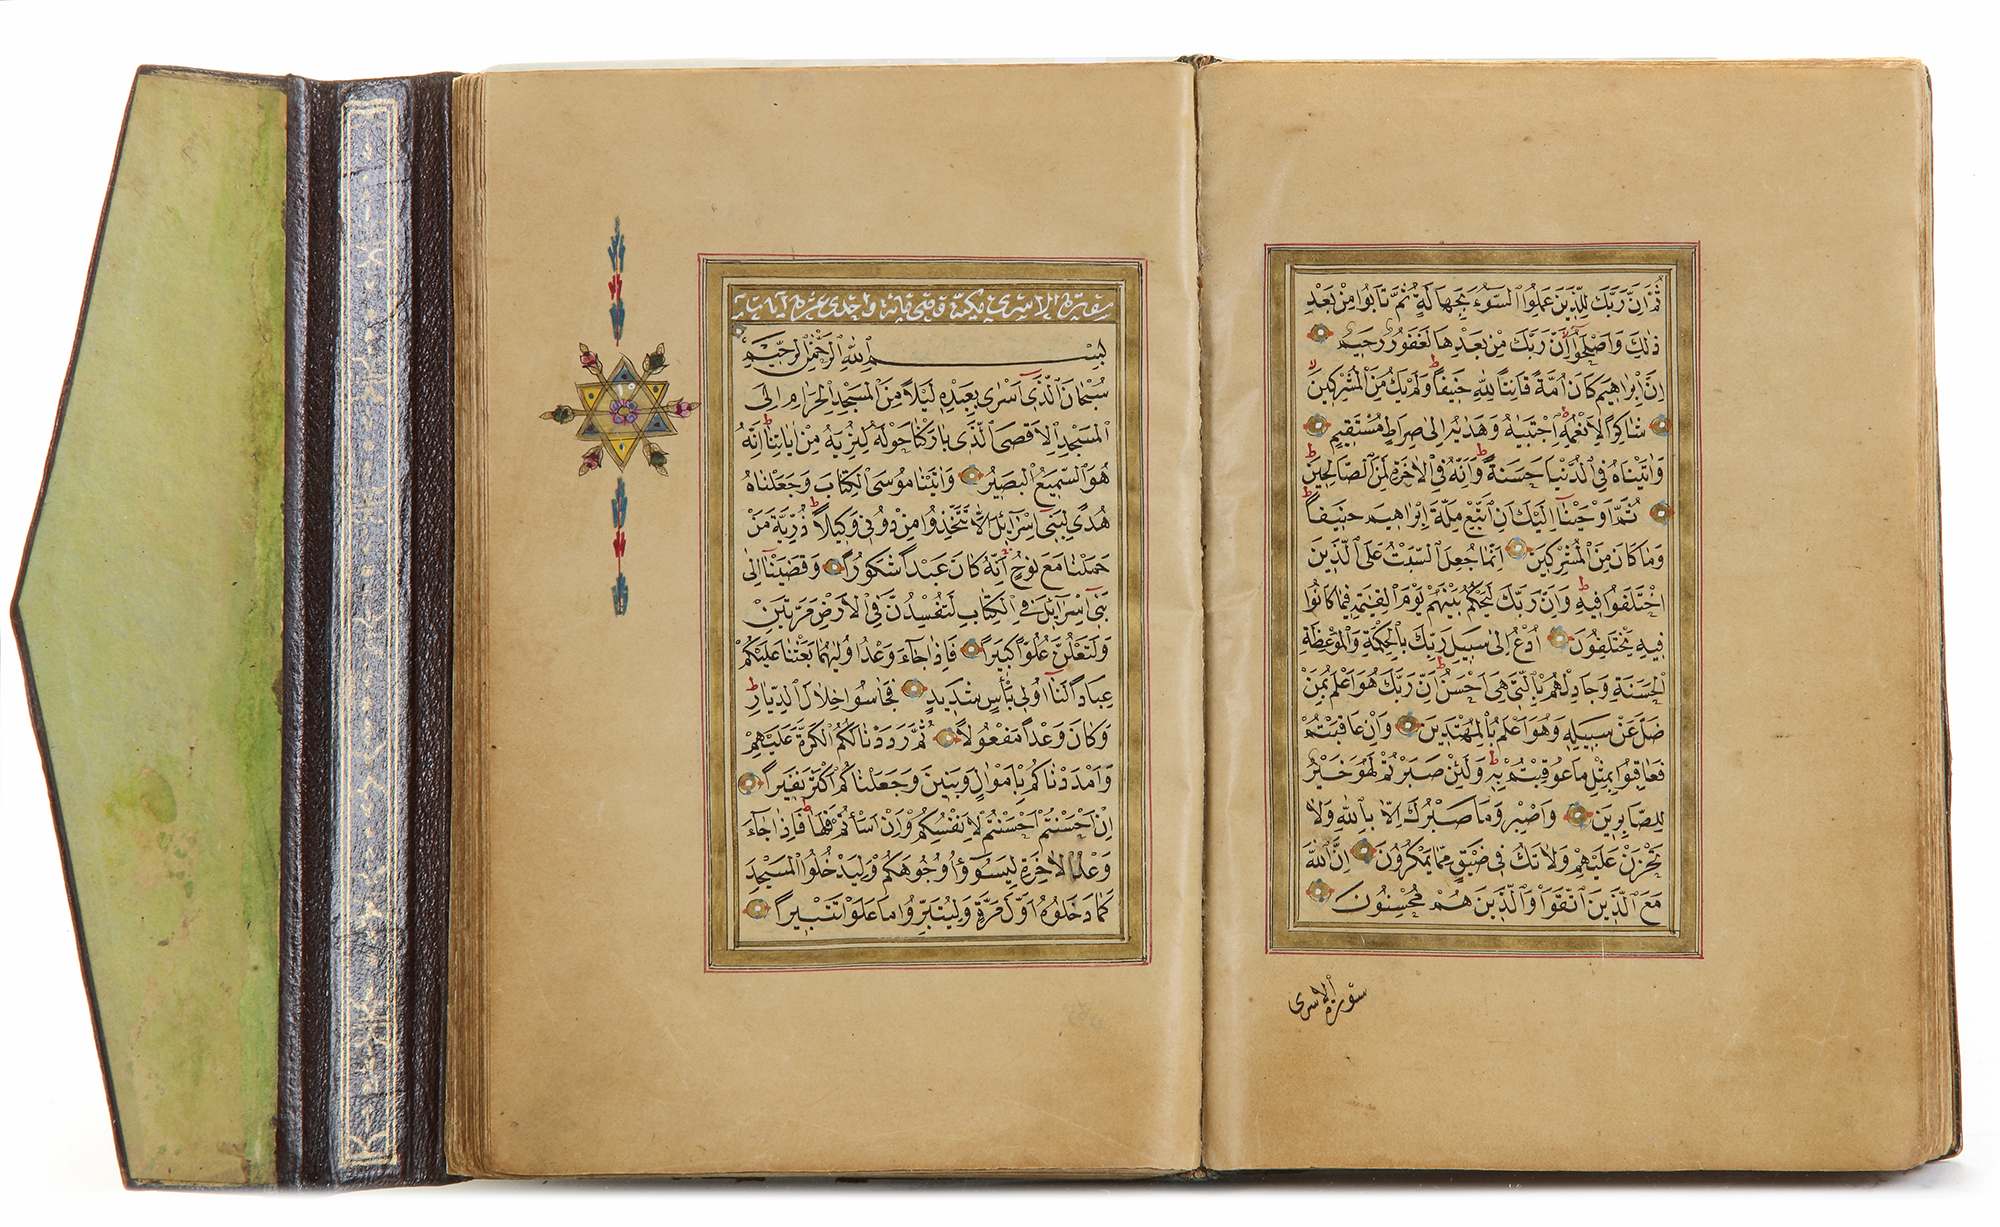 ثُمَّ اِنَّ رَبَّكَ لِلَّذِينَ عَمِلُوا السُّوٓءَ بِجَهَالَةٍ ثُمَّ تَابُوا مِنْ بَعْدِ
ذٰلِكَ وَاَصْلَحُوٓا اِنَّ رَبَّكَ مِنْ بَعْدِهَا لَغَفُورٌ رَحِيمٌ
اِنَّ اِبْرَاهِيمَ كَانَ اُمَّةً قَانِتًا لِلّٰهِ حَنِيفًا وَلَمْ يَكُ مِنَ الْمُشْرِكِينَ
شَاكِرًا لِاَنْعُمِهِ اِجْتَبٰيهُ وَهَدٰيهُ اِلٰى صِرَاطٍ مُسْتَقِيمٍ
وَاٰتَيْنَاهُ فِي الدُّنْيَا حَسَنَةً وَاِنَّهُ فِي الْاٰخِرَةِ لَمِنَ الصَّالِحِينَ
ثُمَّ اَوْحَيْنَٓا اِلَيْكَ اَنِ اتَّبِعْ مِلَّةَ اِبْرَاهِيمَ حَنِيفًا
وَمَا كَانَ مِنَ الْمُشْرِكِينَ اِنَّمَا جُعِلَ السَّبْتُ عَلَى الَّذِينَ
اخْتَلَفُوا فِيهِ وَاِنَّ رَبَّكَ لَيَحْكُمُ بَيْنَهُمْ يَوْمَ الْقِيٰمَةِ فِيمَا كَانُوا
فِيهِ يَخْتَلِفُونَ اُدْعُ اِلٰى سَبِيلِ رَبِّكَ بِالْحِكْمَةِ وَالْمَوْعِظَةِ
الْحَسَنَةِ وَجَادِلْهُمْ بِالَّتِي هِيَ اَحْسَنُ اِنَّ رَبَّكَ هُوَ اَعْلَمُ بِمَنْ
ضَلَّ عَنْ سَبِيلِهِ وَهُوَ اَعْلَمُ بِالْمُهْتَدِينَ وَاِنْ عَاقَبْتُمْ
فَعَاقِبُوا بِمِثْلِ مَا عُوقِبْتُمْ بِهِ وَلَئِنْ صَبَرْتُمْ لَهُوَ خَيْرٌ
لِلصَّابِرِينَ وَاصْبِرْ وَمَا صَبْرُكَ اِلَّا بِاللّٰهِ وَلَا
تَحْزَنْ عَلَيْهِمْ وَلَا تَكُ فِي ضَيْقٍ مِمَّا يَمْكُرُونَ اِنَّ اللّٰهَ
مَعَ الَّذِينَ اتَّقَوْا وَالَّذِينَ هُمْ مُحْسِنُونَ
سورة الاسرى
سورة الاسرى مكية وهي مائة واحدى عشرة آيات
بِسْمِ اللّٰهِ الرَّحْمٰنِ الرَّحِيمِ
سُبْحَانَ الَّذِٓي اَسْرٰى بِعَبْدِهِ لَيْلًا مِنَ الْمَسْجِدِ الْحَرَامِ اِلَى
الْمَسْجِدِ الْاَقْصَى الَّذِي بَارَكْنَا حَوْلَهُ لِنُرِيَهُ مِنْ اٰيَاتِنَا اِنَّهُ
هُوَ السَّمِيعُ الْبَصِيرُ وَاٰتَيْنَا مُوسَى الْكِتَابَ وَجَعَلْنَاهُ
هُدًى لِبَنِٓي اِسْرَآئِلَ اَلَّا تَتَّخِذُوا مِنْ دُونِي وَكِيلًا ذُرِّيَّةَ مَنْ
حَمَلْنَا مَعَ نُوحٍ اِنَّهُ كَانَ عَبْدًا شَكُورًا وَقَضَيْنَٓا اِلٰى
بَنِٓي اِسْرَآئِلَ فِي الْكِتَابِ لَتُفْسِدُنَّ فِي الْاَرْضِ مَرَّتَيْنِ
وَلَتَعْلُنَّ عُلُوًّا كَبِيرًا فَاِذَا جَآءَ وَعْدُ اُولٰيهُمَا بَعَثْنَا عَلَيْكُمْ
عِبَادًا لَنَٓا اُولِي بَأْسٍ شَدِيدٍ فَجَاسُوا خِلَالَ الدِّيَارِ
وَكَانَ وَعْدًا مَفْعُولًا ثُمَّ رَدَدْنَا لَكُمُ الْكَرَّةَ عَلَيْهِمْ
وَاَمْدَدْنَاكُمْ بِاَمْوَالٍ وَبَنِينَ وَجَعَلْنَاكُمْ اَكْثَرَ نَفِيرًا
اِنْ اَحْسَنْتُمْ اَحْسَنْتُمْ لِاَنْفُسِكُمْ وَاِنْ اَسَأْتُمْ فَلَهَا فَاِذَا جَآءَ
وَعْدُ الْاٰخِرَةِ لِيَسُٓوؤُا وُجُوهَكُمْ وَلِيَدْخُلُوا الْمَسْجِدَ
كَمَا دَخَلُوهُ اَوَّلَ مَرَّةٍ وَلِيُتَبِّرُوا مَا عَلَوْا تَتْبِيرًا